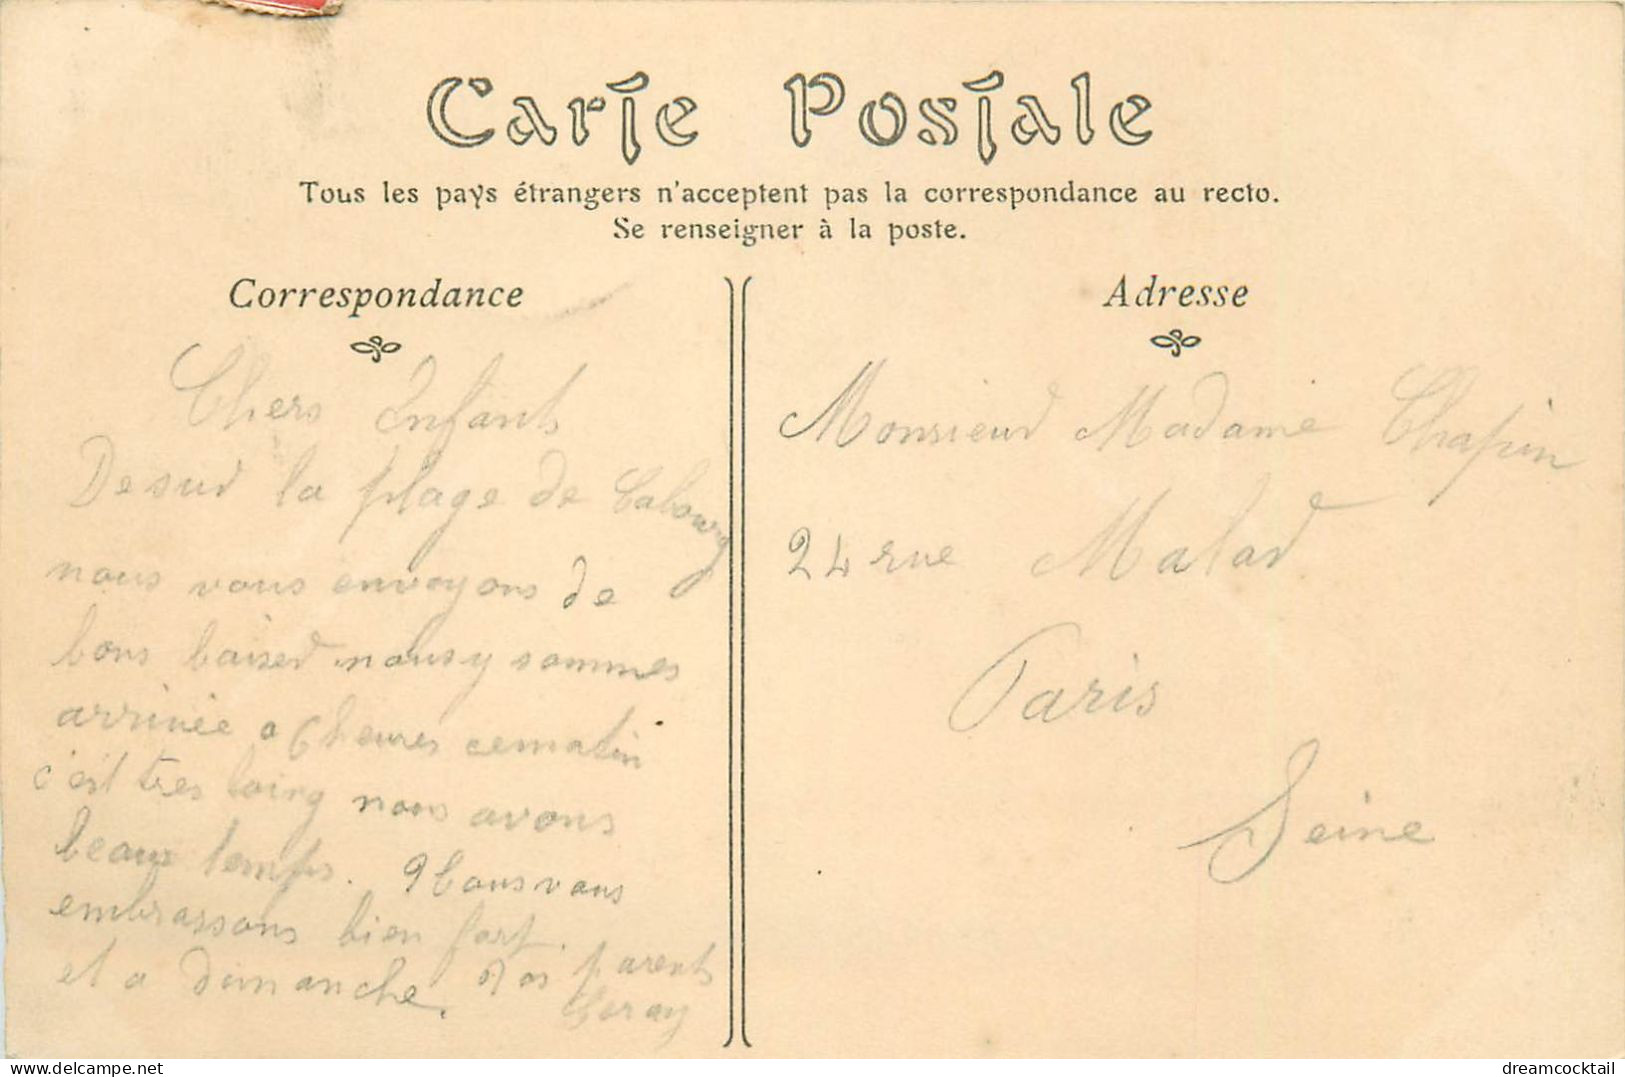 Carte Postale
Tous les pays étrangers n'acceptent pas la correspondance au recto.
Se renseigner à la poste.
Correspondance
Chers Enfants
De sur la plage de Cabourg
nous vous envoyons de
bons baiser nousy sommes
arrivée a 6 heures cematin
c'est tres loing nous avons
beaux temps. Nous vous
embrassons bien fort.
et a dimanche. Vos parents
Adresse
Monsieur Madame Chapin
24 rue Malar
Paris
Seine
dreamcocktail